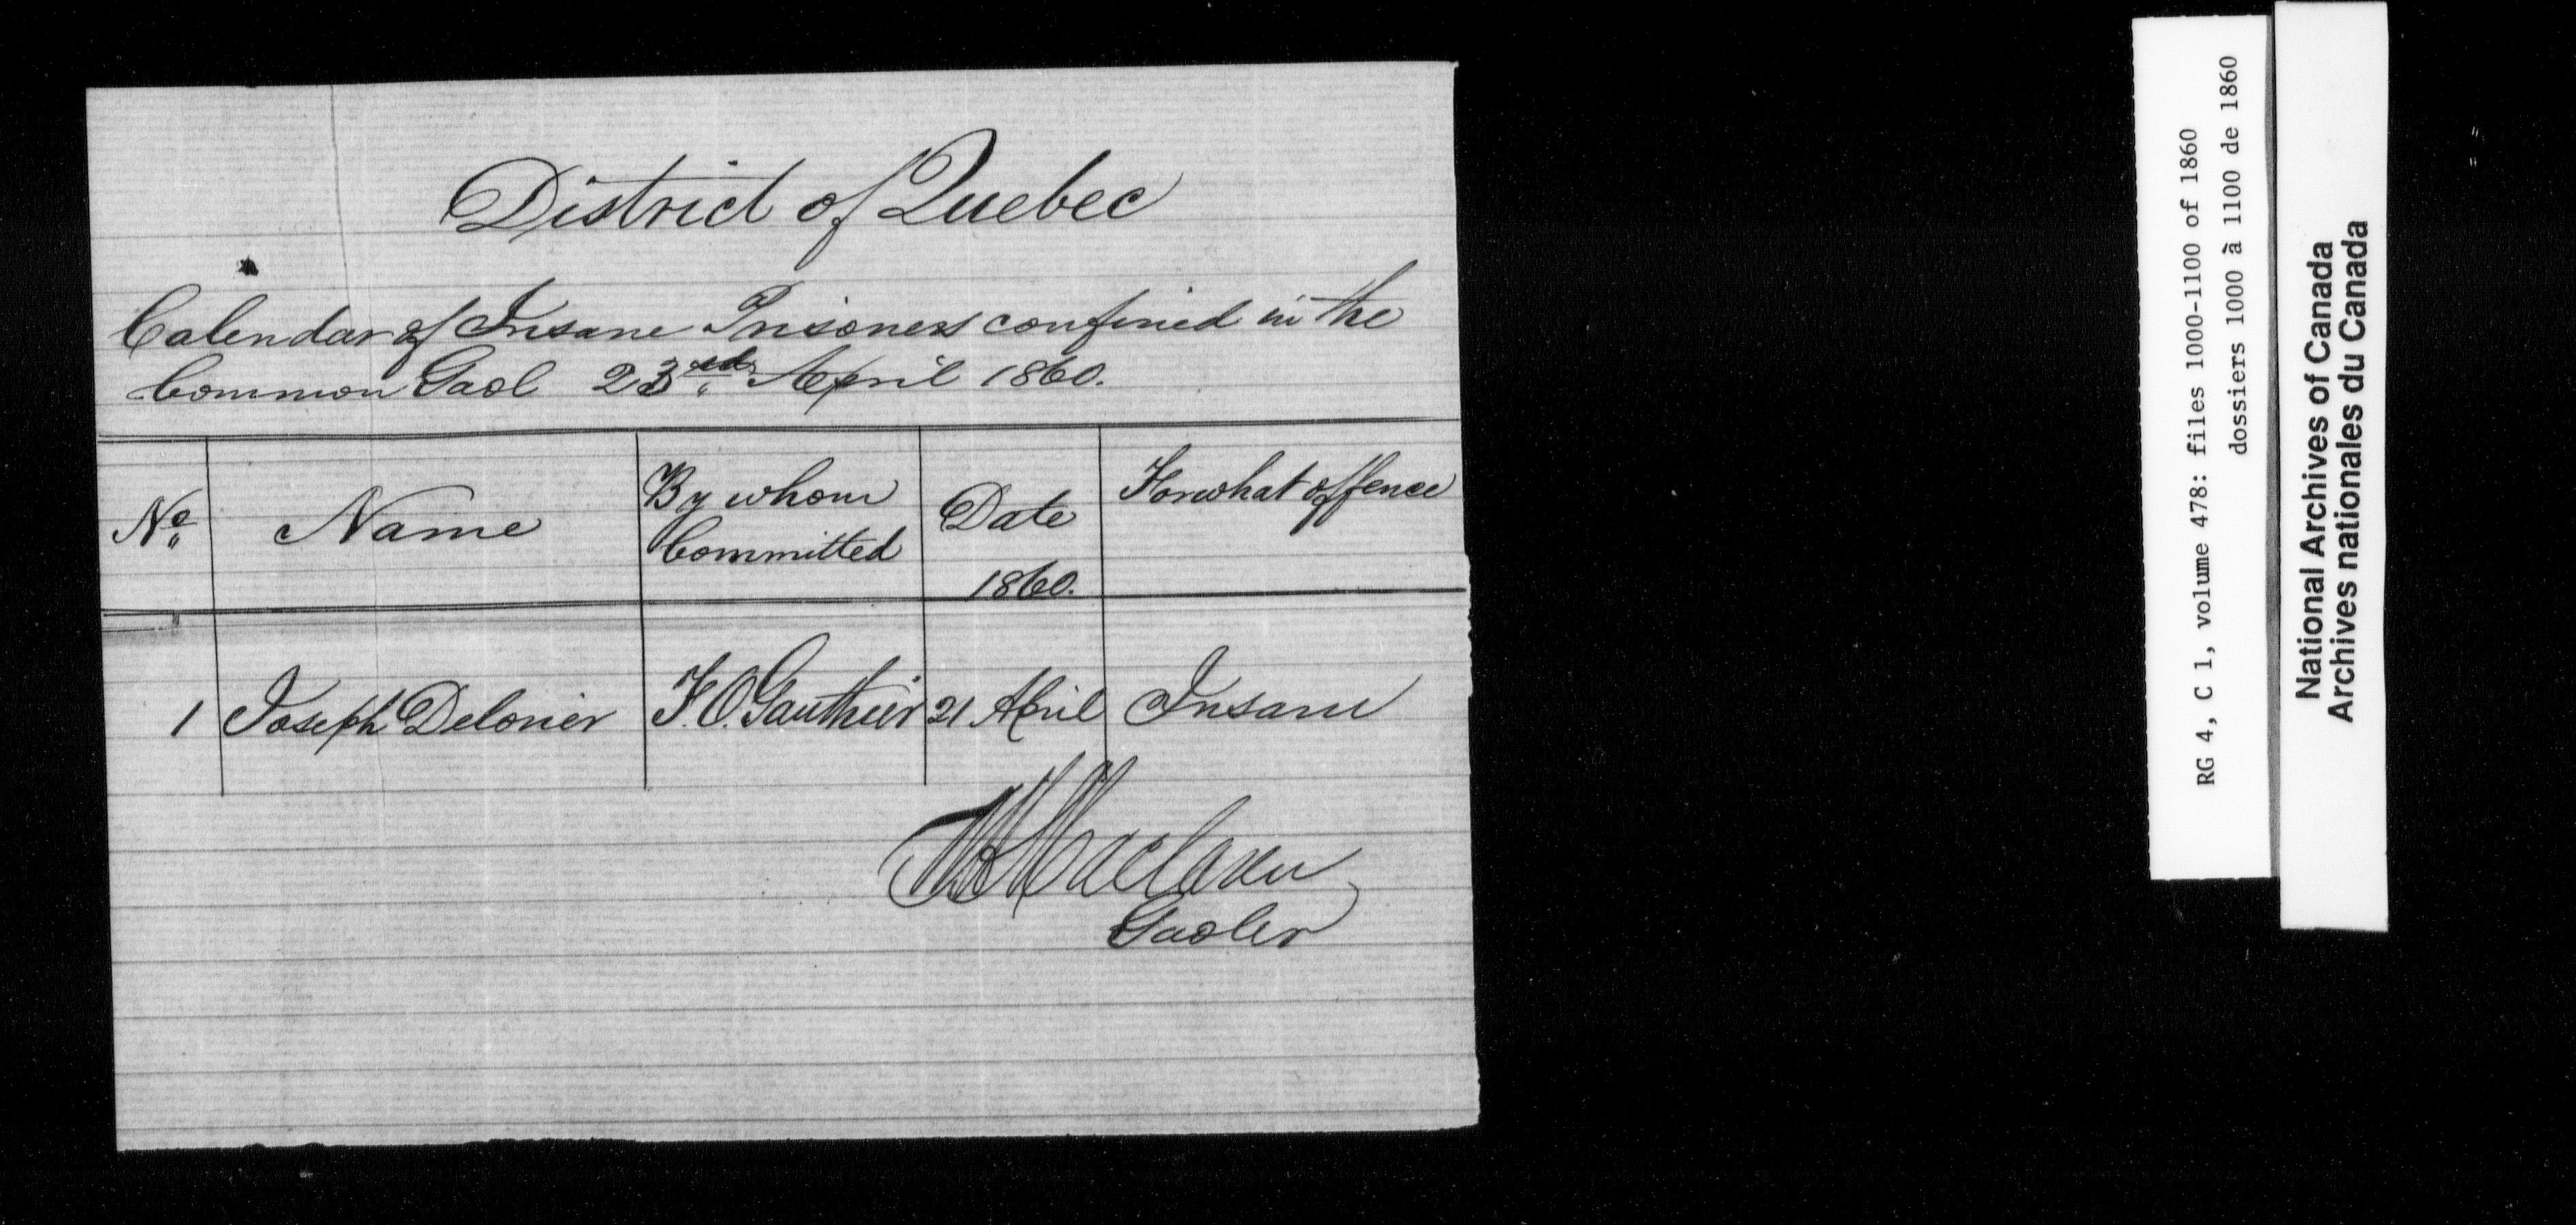 District of Quebec
Calendar of Insane Prisoners confined in the
Common Gaol 23rd April 1860.
No. Name By whom Committed Date 1860. For what offence
1 Joseph Delorier F. O. Gauthier 21 April Insane
Maclaren
Gaoler
RG 4, C 1, volume 478: files 1000-1100 of 1860
dossiers 1000 à 1100 de 1860
National Archives of Canada
Archives nationales du Canada